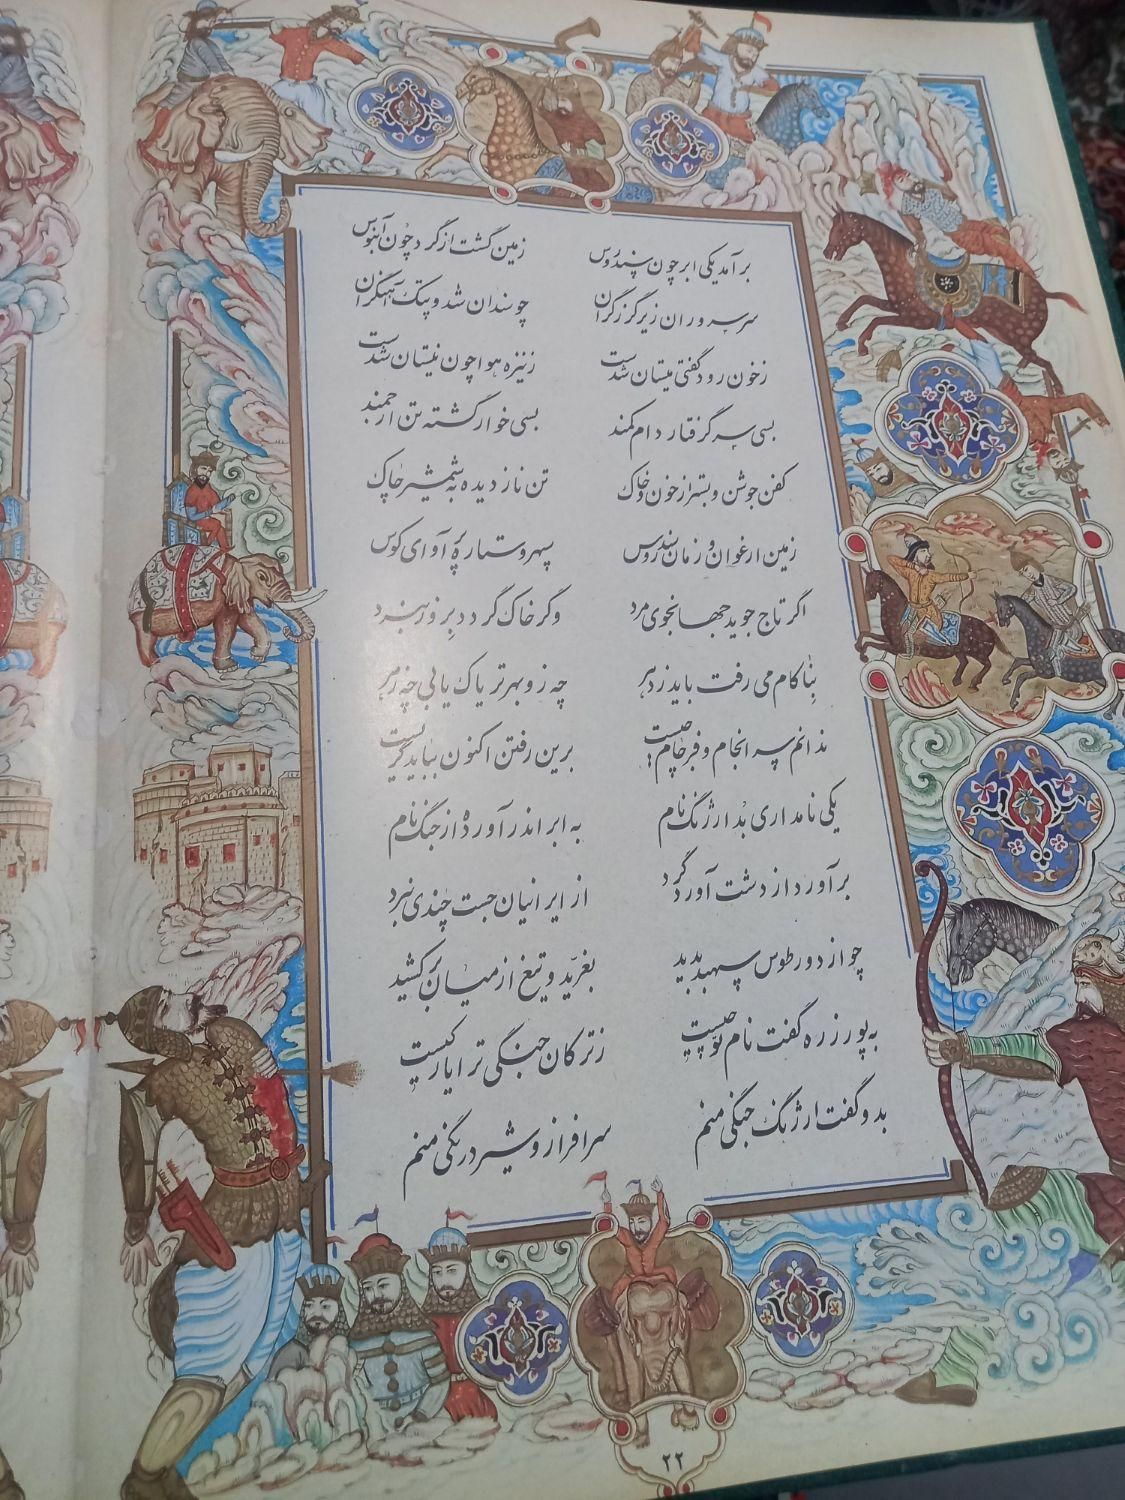 برآمد یکی ابر چون سندروس زمین گشت از گرد چون آبنوس
سر سروران زیر گرز گران چو سندان شد و پتک آهنگران
ز خون رود گفتی میستان شدست ز نیزه هوا چون نیستان شدست
بسی سر گرفتار دام کمند بسی خوار گشته تن ارجمند
کفن جوشن و بستر از خون و خاک تن ناز دیده به شمشیر چاک
زمین ارغوان و زمان سندروس سپهر و ستاره پر آوای کوس
اگر تاج جوید جهانجوی مرد وگر خاک گردد بروز نبرد
بناکام می رفت باید ز دهر چه زو بهر تریاک یابی چه زهر
ندانم سرانجام و فرجام چیست برین رفتن اکنون بباید گریست
یکی نامداری بد ارژنگ نام به ابر اندر آورده از جنگ نام
برآورد از دشت آورد گرد از ایرانیان جست چندی نبرد
چو از دور طوس سپهبد بدید بغرید و تیغ از میان برکشید
به پور زره گفت نام تو چیست ز ترکان جنگی ترا یار کیست
بدو گفت ارژنگ جنگی منم سرافراز و شیر درنگی منم
۲۲